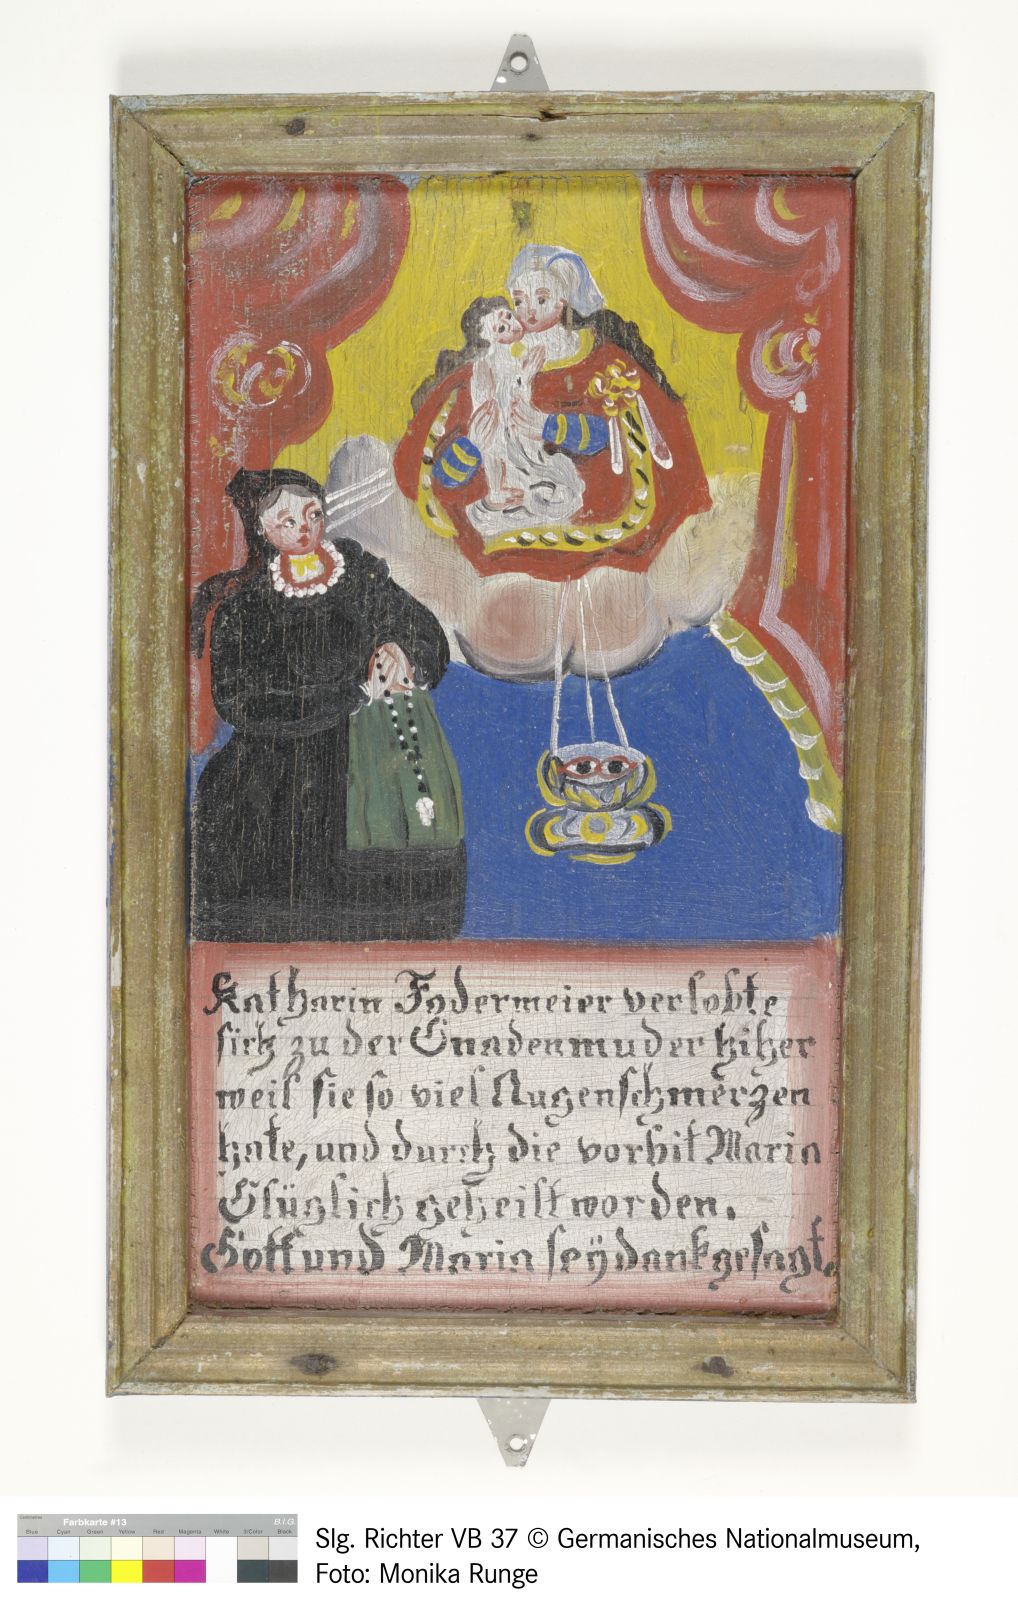 Katharin Fodermeier verlobte
sich zu der Gnadenmuder hiher
weil sie so viel Augenschmerzen
hate, und durch die vorbit Maria
Glüglich geheilt worden.
Gott und Maria seÿ dank gesagt.
Centimetres
Farbkarte #13
B.I.G.
Blue Cyan Green Yellow Red Magenta White 3/Color Black
Slg. Richter VB 37 © Germanisches Nationalmuseum,
Foto: Monika Runge